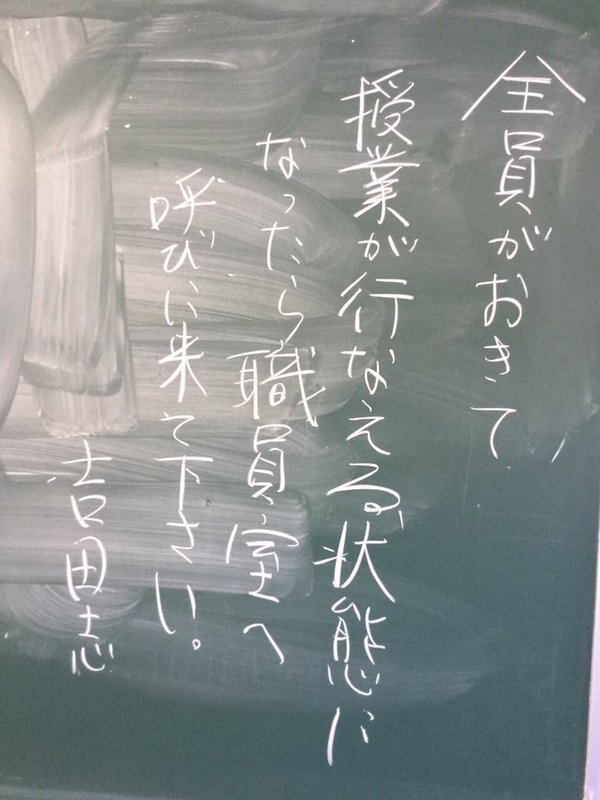 全員がおきて
授業が行なえる状態に
なったら職員室へ
呼びに来て下さい。
吉田志